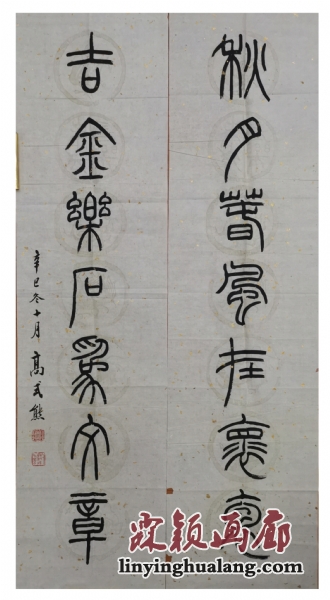 秋月春風在懷抱
吉金樂石為文章
辛巳冬十月 高式熊
霖颖画廊
linyinghualang.com